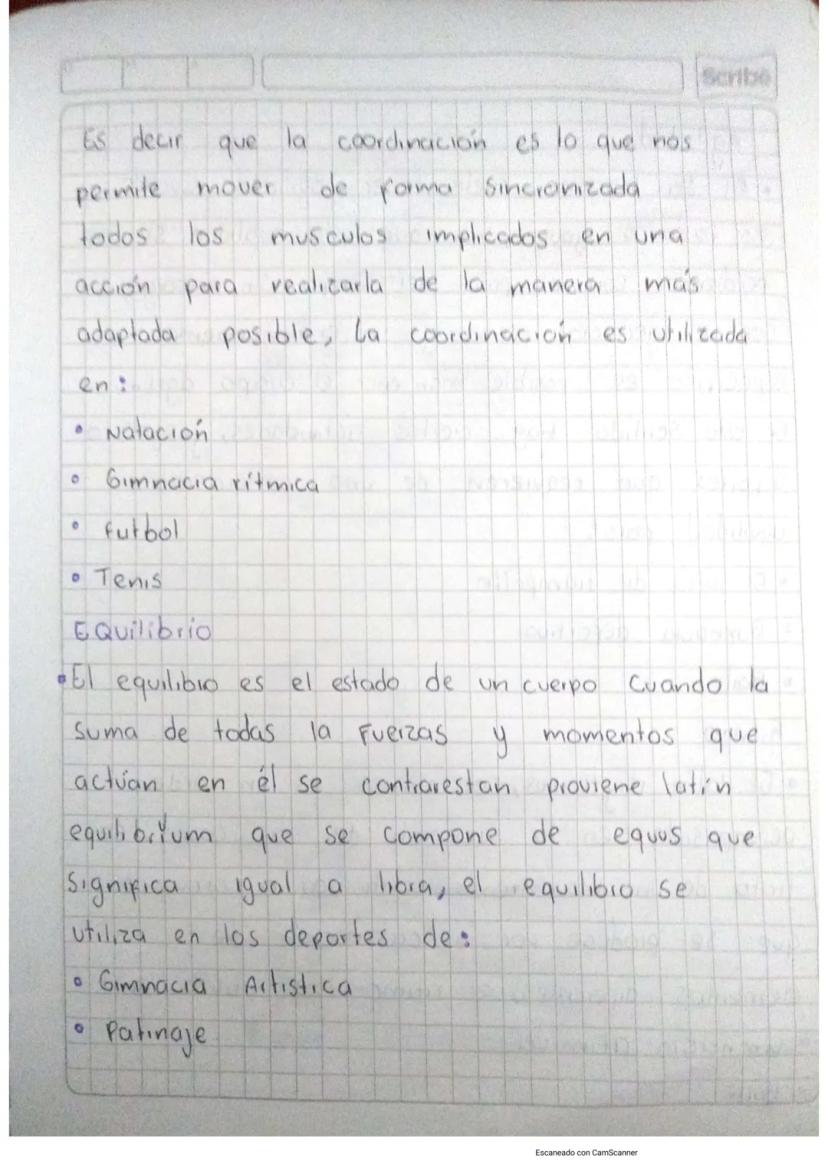 Scribe
Es decir que la coordinación es lo que nos
permite mover de forma sincronizada
todos los musculos implicados en una
acción para realizarla de la manera más
adaptada posible, La coordinación es utilizada
en:
• Natación
• Gimnacia rítmica
• futbol
• Tenis
EQuilibrio
• El equilibrio es el estado de un cuerpo cuando la
suma de todas la Fuerzas y momentos que
actúan en él se contrarestan proviene latín
equilibrium que se compone de equus que
significa igual a libra, el equilibrio se
utiliza en los deportes de:
• Gimnacia Artistica
• Patinaje
Escaneado con CamScanner